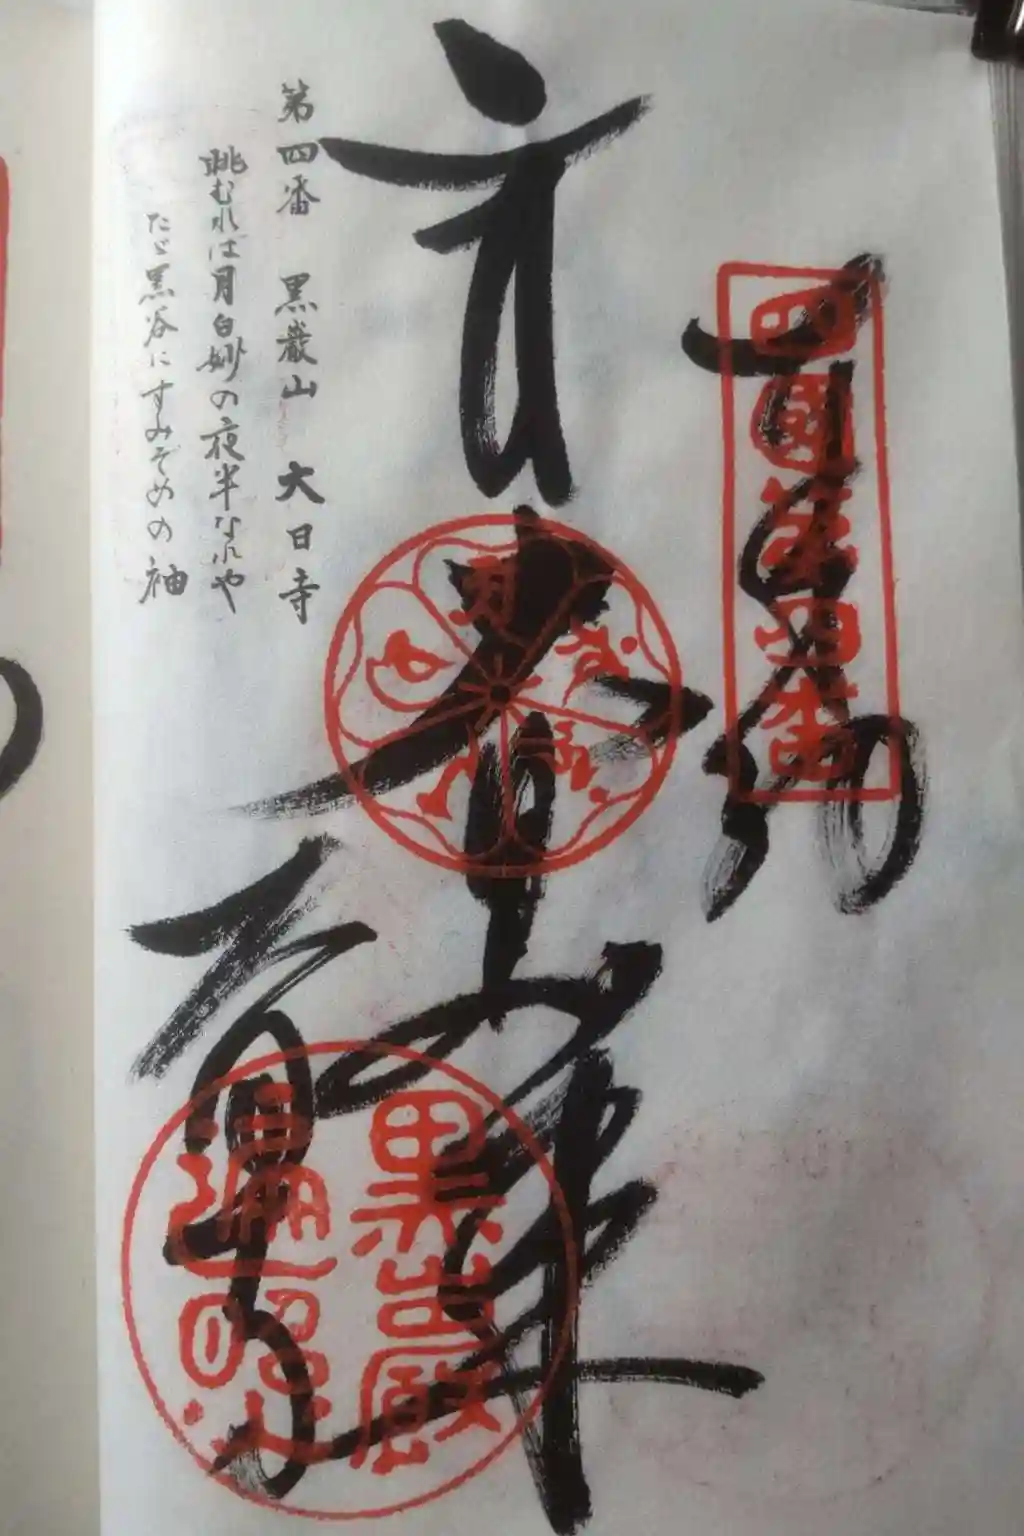 奉納
四國第四番
大日如来
黒巌山
遍照
第四番 黒巌山 大日寺
眺むれば月白妙の夜半なれや
たゞ黒谷にすみぞめの袖